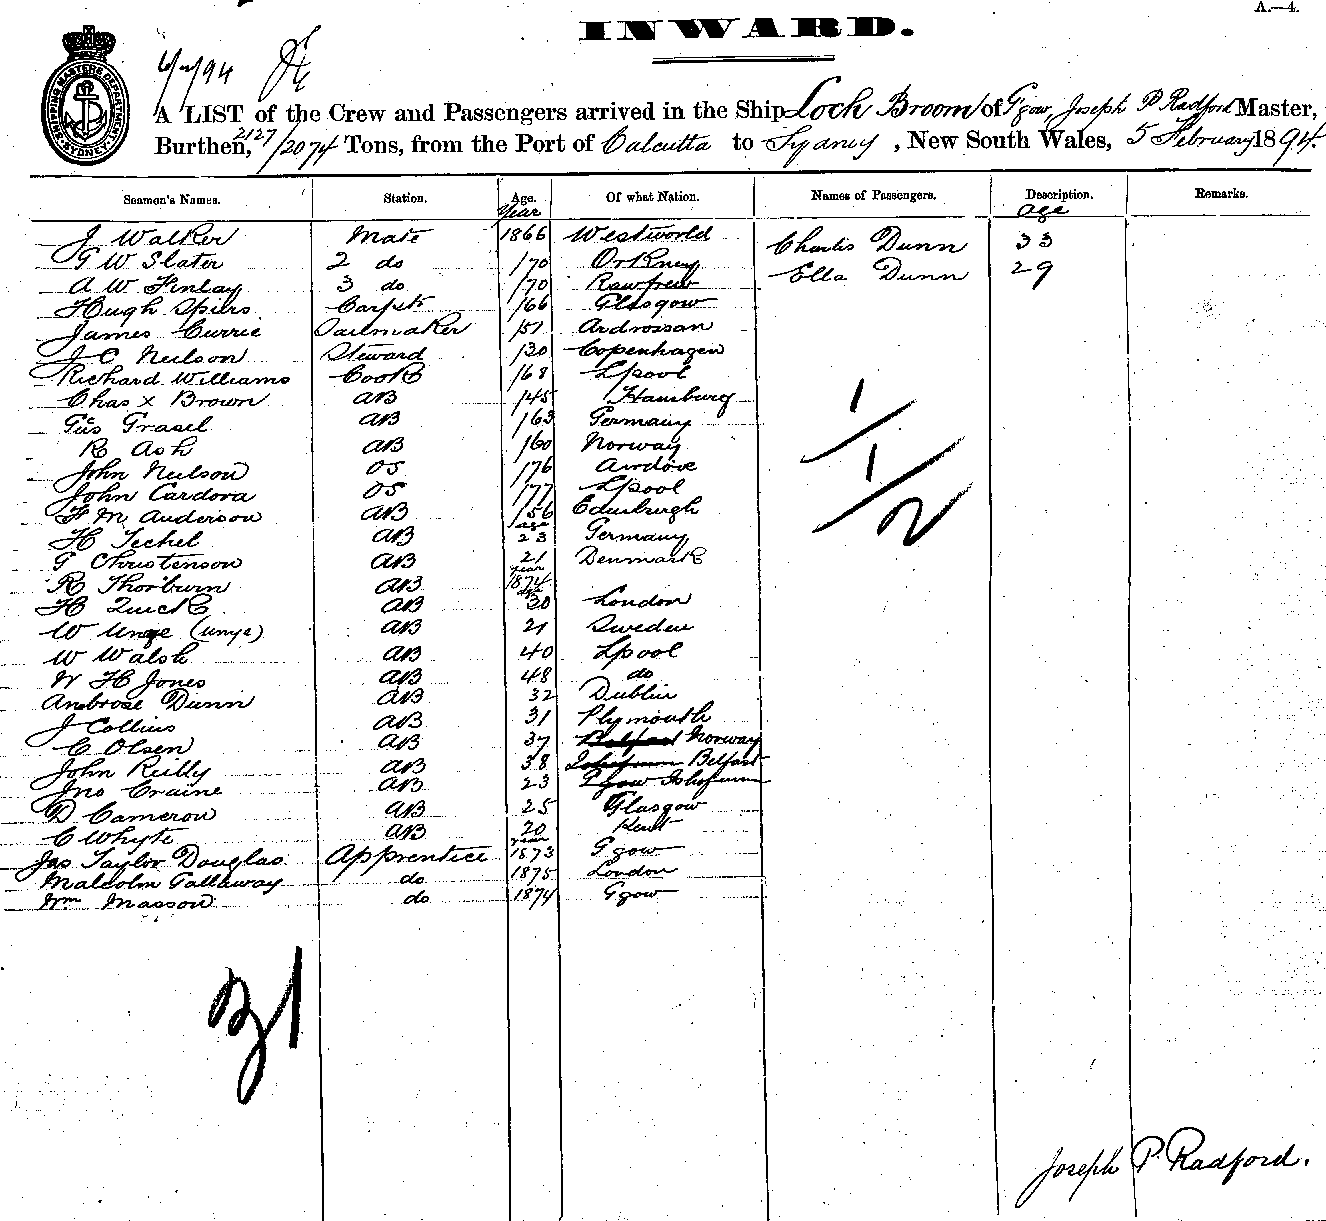 A.—4.
INWARD.
SHIPPING MASTERS DEPARTMENT. SYDNEY
A LIST of the Crew and Passengers arrived in the Ship Loch Broom of Ggow, Joseph P Radford Master,
Burthen, 2127/2074 Tons, from the Port of Calcutta to Sydney, New South Wales, 5 February 1894.
Seamen's Names. Station. Age. Of what Nation. Names of Passengers. Description. Remarks.
Year age
J Walker Mate 1866 Westworld Charlis Dunn 33
G W Slater 2 do /70 Orkney Ella Dunn 29
A W Finlay 3 do /70 Ranfrew
Hugh Spiers Carptr /66 Glasgow
James Currie Sailmaker /51 Ardrossan
J C Neilson Steward /30 Copenhagen
Richard Williams Cook /68 Lpool
Chas x Brown AB /45 Hamburg
Gus Grasel AB /63 Germany
R Ash AB /60 Norway
John Neilson OS /76 Airdrie
John Cardova OS /77 Lpool
F M Anderson AB /56 Edinburgh
age
H Techel AB 23 Germany
G Christenson AB 21 Denmark
year
R Thorburn AB 1874
age
H Quick AB 20 London
W Unge (unge) AB 21 Sweden
W Walsh AB 40 Lpool
W H Jones AB 48 do
Ambrose Dunn AB 32 Dublin
J Collins AB 31 Plymouth
C Olsen AB 37 Belfast Norway
John Reilly AB 38 Belfast
Jno Craine AB 23 Ggow
D Cameron AB 25 Glasgow
C Whyte AB 20 Kent
year
Jas Taylor Douglas Apprentice 1873 Ggow
Malcolm Gallaway do 1875 London
Wm Masson do 1874 Ggow
1/1/2
31
Joseph P. Radford.